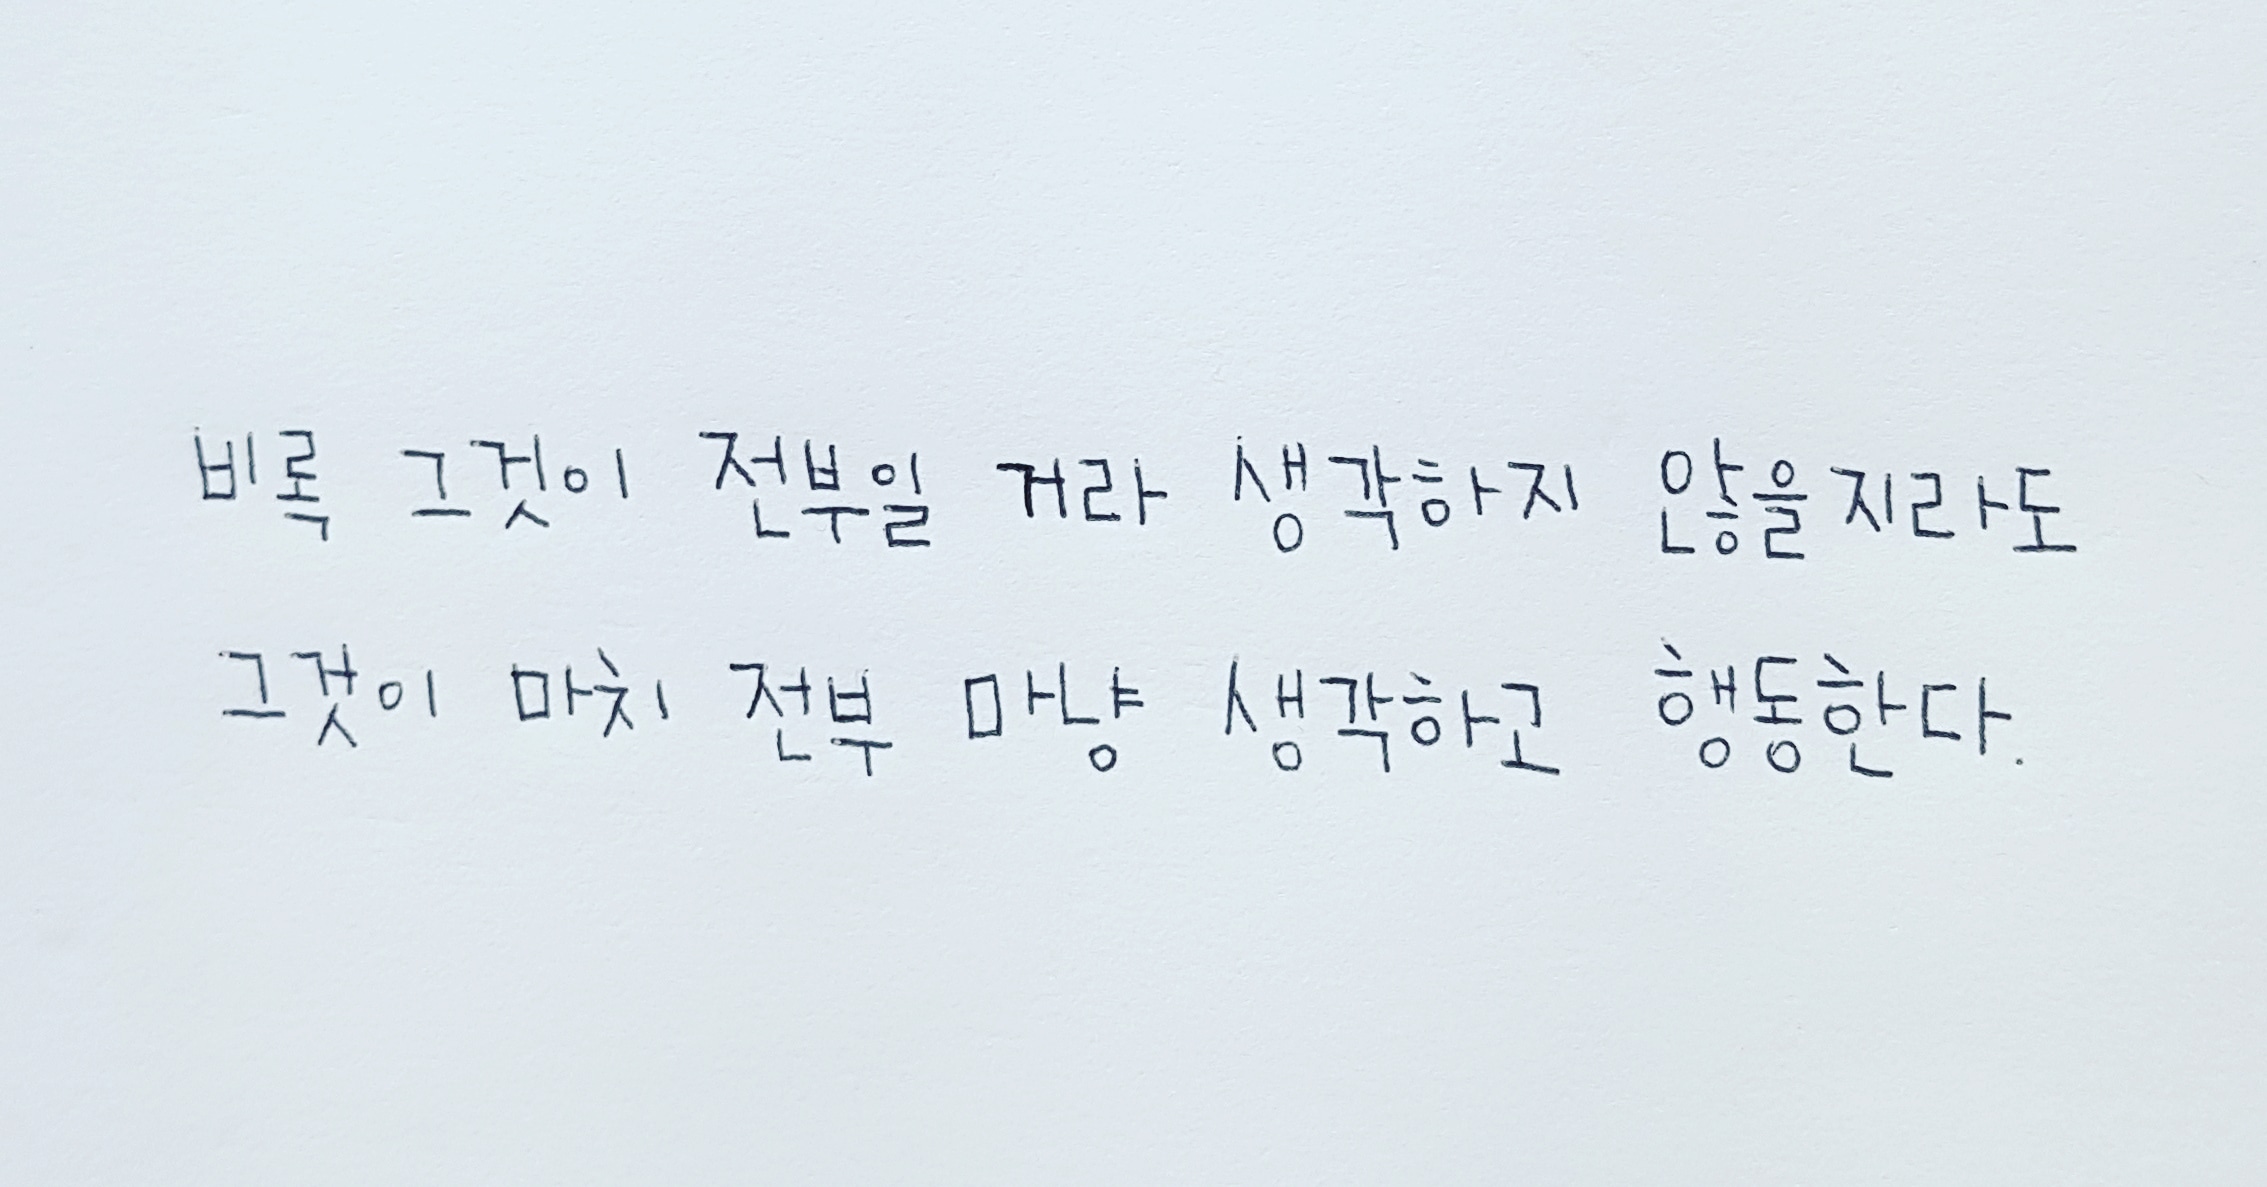 비록 그것이 전부일 거라 생각하지 않을지라도
그것이 마치 전부 마냥 생각하고 행동한다.